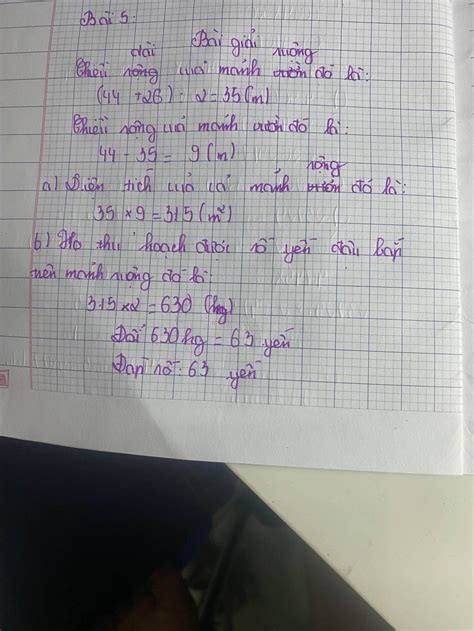 Bài 5:
Bài giải
Chiều dài của mảnh ruộng đó là:
(44 + 26) : 2 = 35 (m)
Chiều rông của mảnh vườn đó là:
44 - 35 = 9 (m)
a) Diên tích của cả mảnh rông đó là:
35 × 9 = 315 (m²)
b) Họ thu hoạch được số yến đâu
trên mảnh ruộng đó là:
315 × 2 = 630 (kg)
Đổi 630kg = 63 yến
Đap số: 63 yến